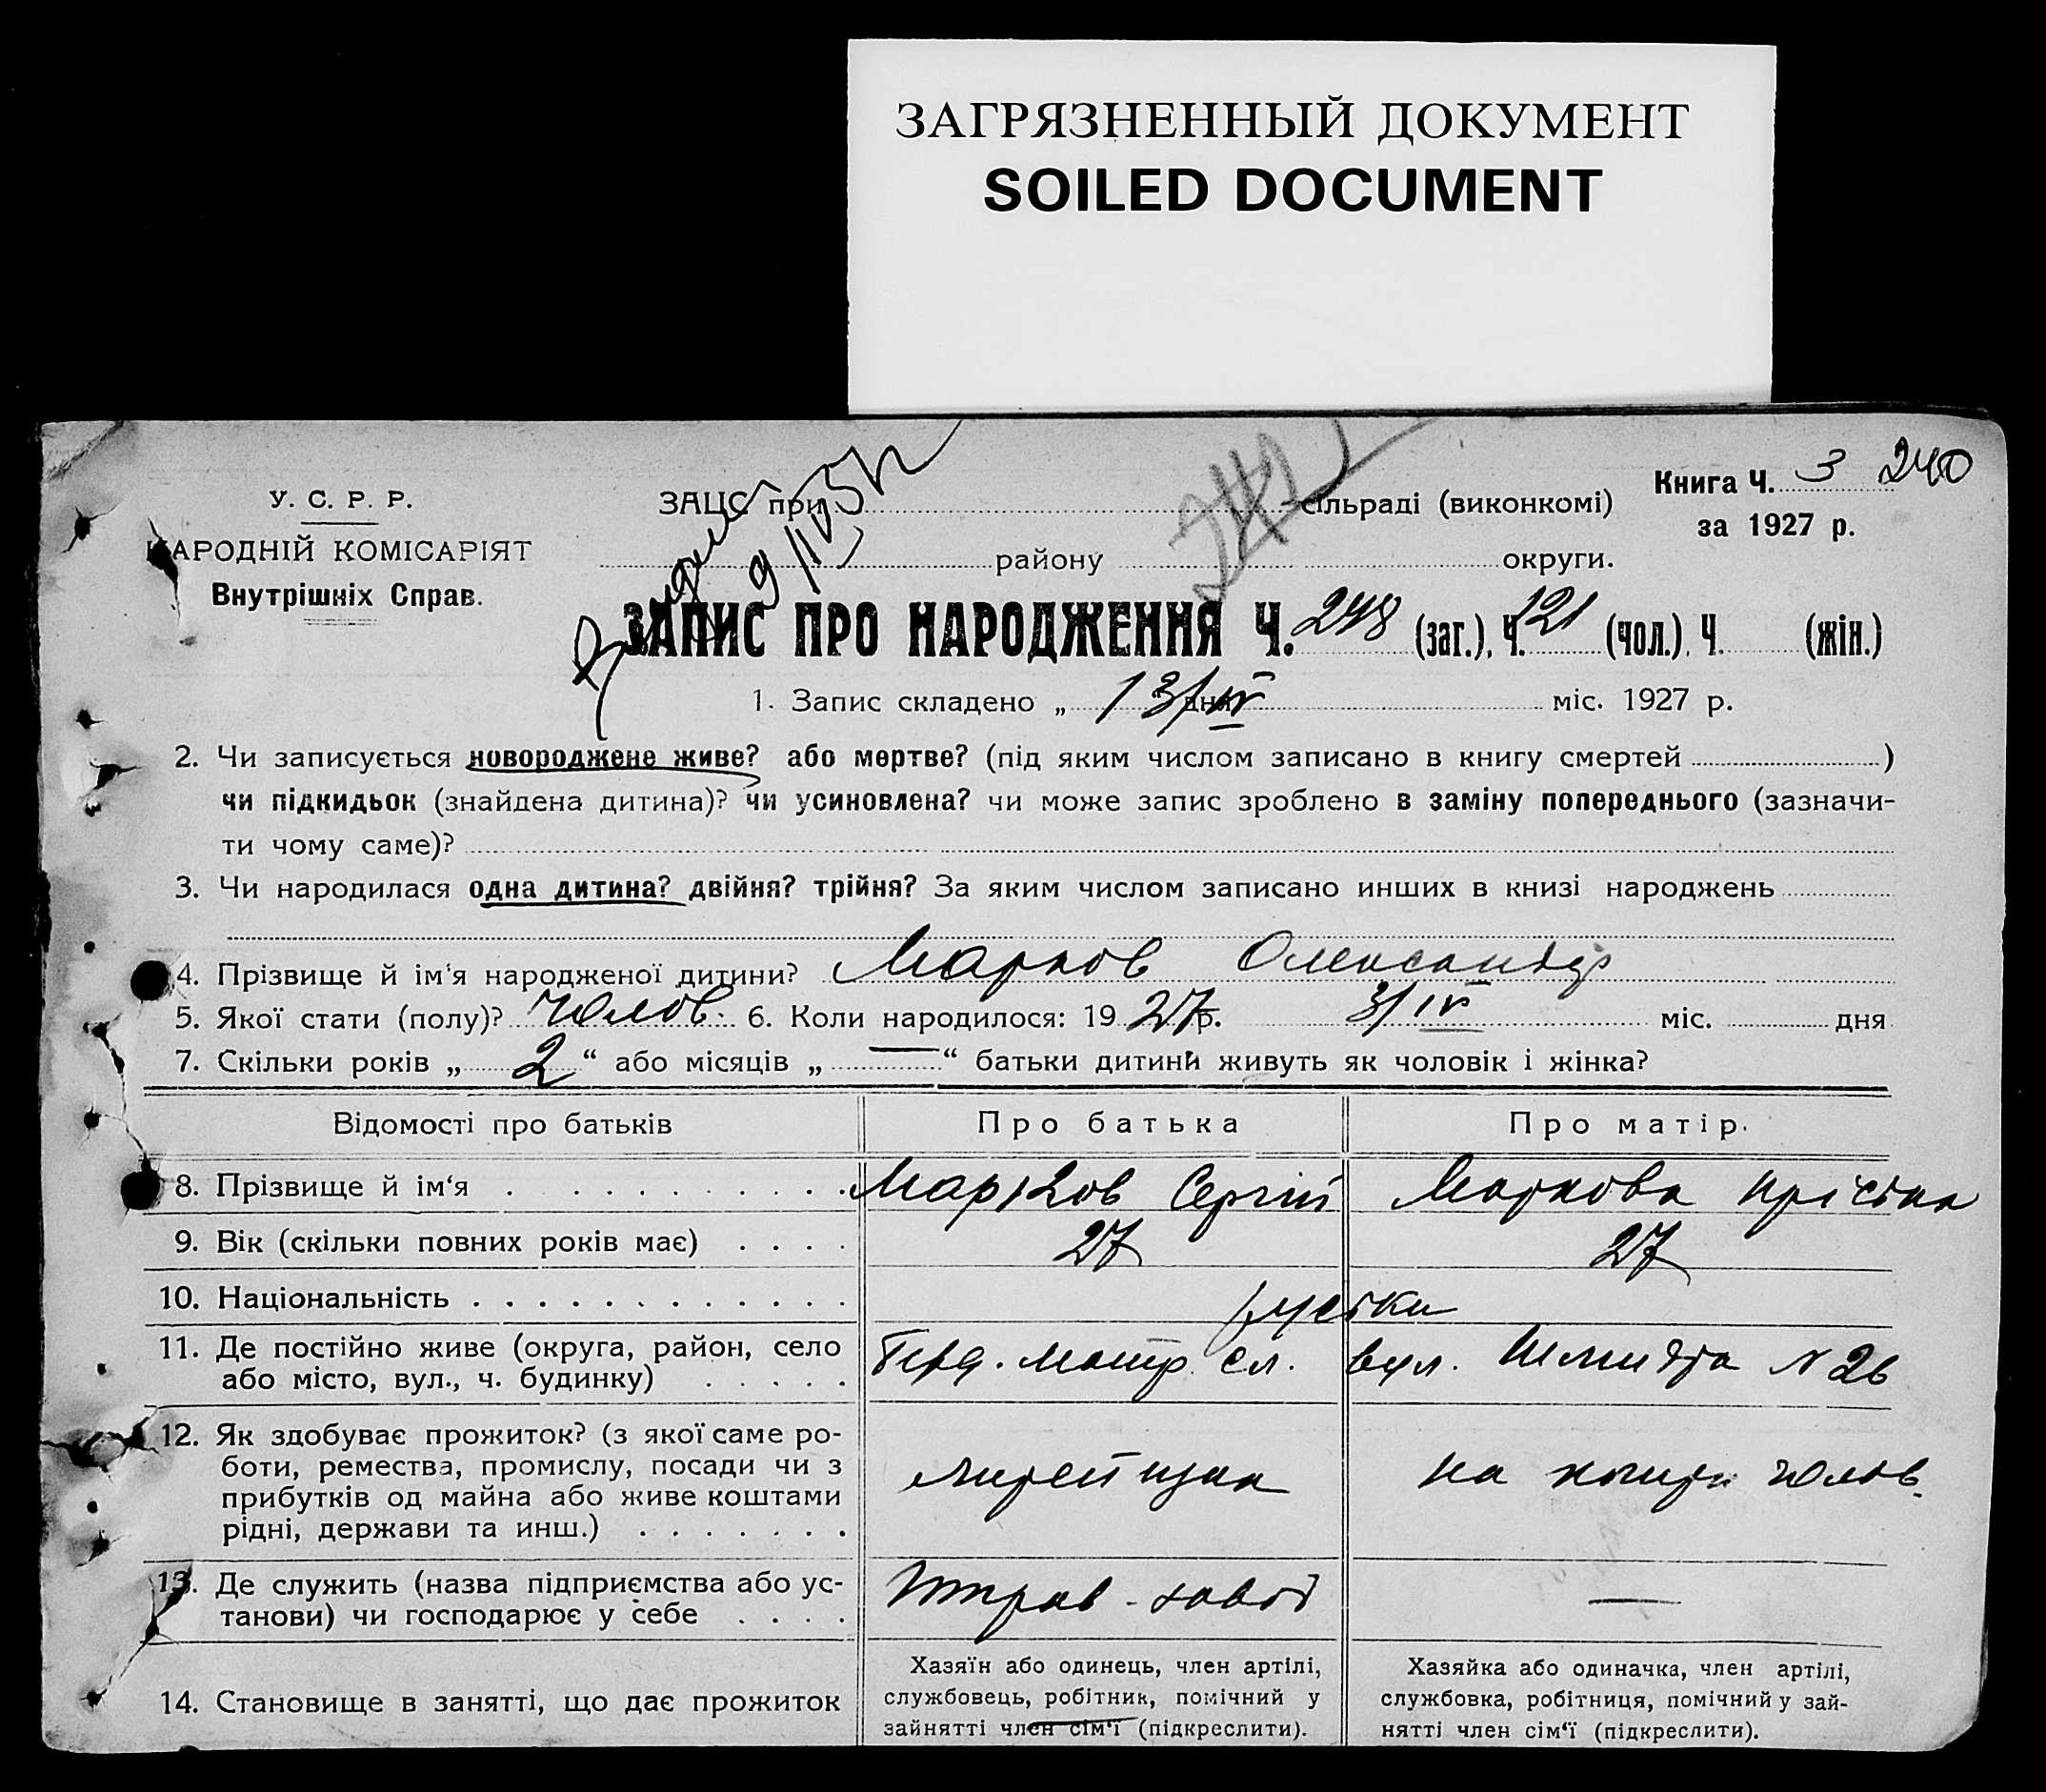 ЗАГРЯЗНЕННЫЙ ДОКУМЕНТ
SOILED DOCUMENT
Книга Ч. 3 240
за 1927 р.
У. С. Р. Р.
НАРОДНІЙ КОМІСАРІЯТ
Внутрішніх Справ.
ЗАЦС при сільраді (виконкомі)
району округи.
ЗАПИС ПРО НАРОДЖЕННЯ Ч. 248 (заг.), Ч. 121 (чол.), Ч. (жін.)
1. Запис складено „ 13/IV дня міс. 1927 р.
2. Чи записується новороджене живе? або мертве? (під яким числом записано в книгу смертей )
чи підкидьок (знайдена дитина)? чи усиновлена? чи може запис зроблено в заміну попереднього (зазначи-
ти чому саме)?
3. Чи народилася одна дитина? двійня? трійня? За яким числом записано инших в книзі народжень
4. Прізвище й ім'я народженої дитини? Марков Олександр
5. Якої стати (полу)? Чолов. 6. Коли народилося: 1927 р. 3/IV міс. дня
7. Скільки років „ 2 “ або місяців „ — “ батьки дитини живуть як чоловік і жінка?
Відомості про батьків Про батька Про матір.
8. Прізвище й ім'я Марков Сергій Маркова Крістна
9. Вік (скільки повних років має) 27 27
10. Національність руські
11. Де постійно живе (округа, район, село вул. Шмидта N 26
або місто, вул., ч. будинку)
12. Як здобуває прожиток? (з якої саме ро-
боти, ремества, промислу, посади чи з на чолов.
прибутків од майна або живе коштами
рідні, держави та инш.)
13. Де служить (назва підприємства або ус- —
танови) чи господарює у себе
14. Становище в занятті, що дає прожиток
Хазяїн або одинець, член артілі,
службовець, робітник, помічний у
зайнятті член сім'ї (підкреслити).
Хазяйка або одиначка, член артілі,
службовка, робітниця, помічний у зай-
нятті член сім'ї (підкреслити).